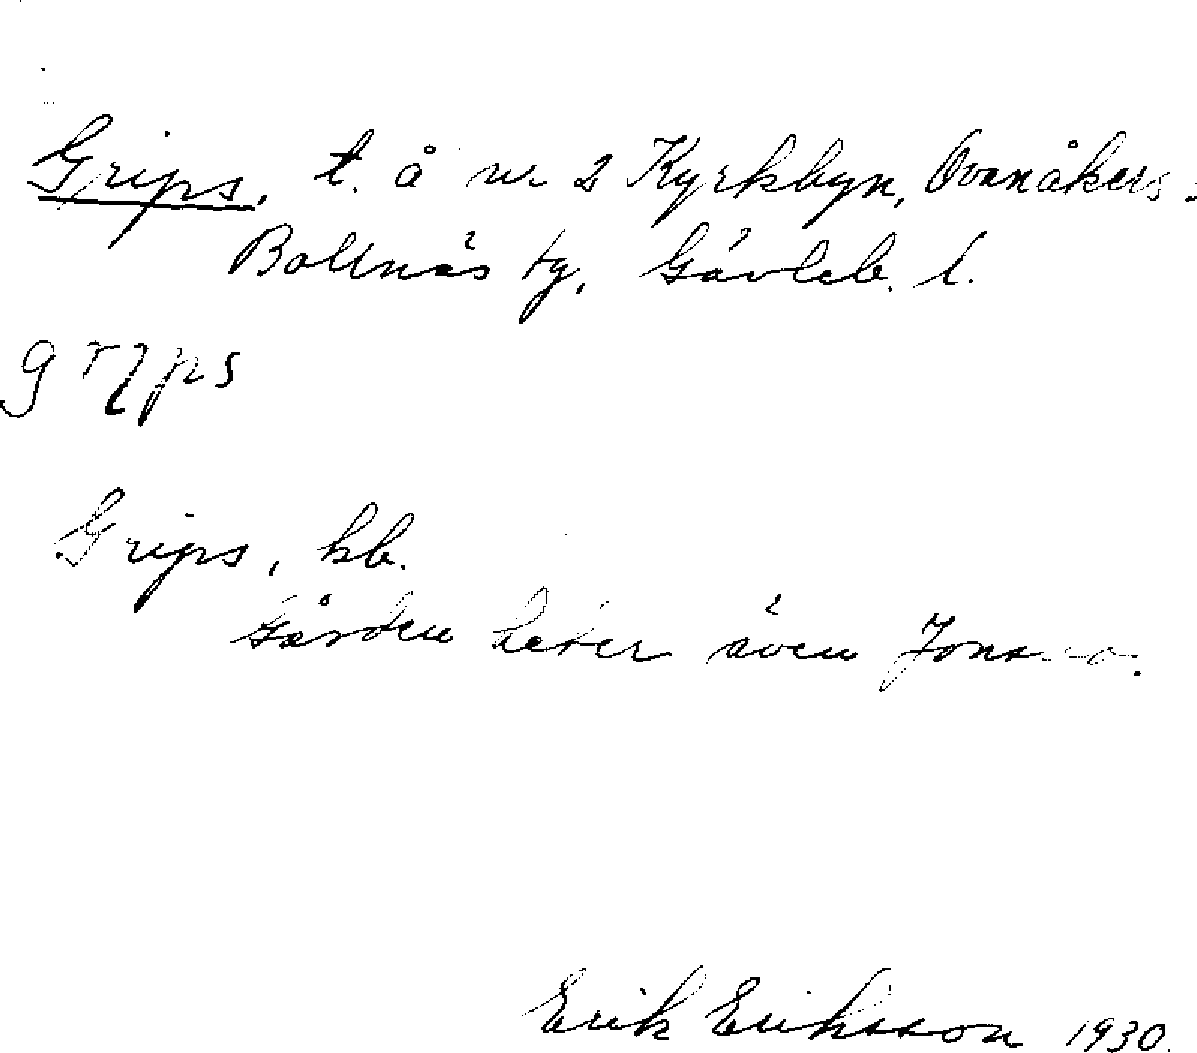 Grips, t. å nr 2 Kyrkbyn, Ovanåkers s:
Bollnäs tg, Gävleb. l.
grips
Grips, kb.
Gården heter även
Erik Eriksson 1930.